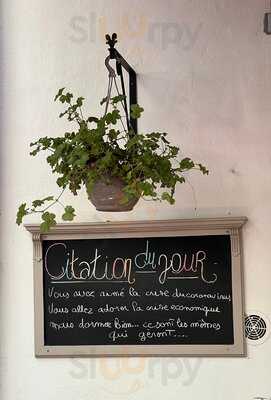 Citation du jour.
Vous avez aimé la crise du coronavirus
Vous allez adorer la crise economique
mais dormez bien... ce sont les mêmes
qui gèrent....